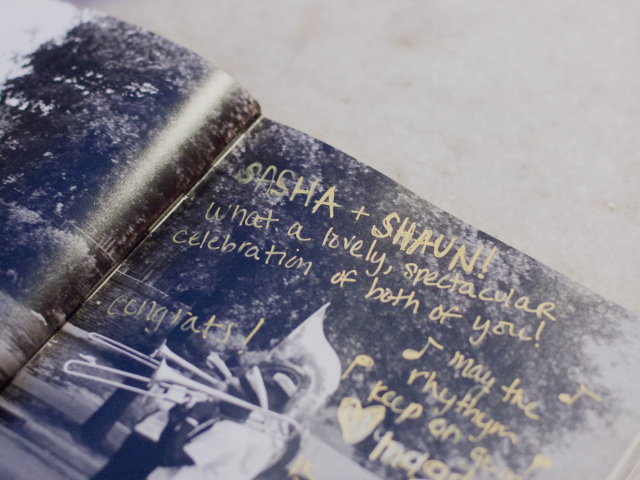 SASHA + SHAUN!
what a lovely, spectacular
celebration of both of you!
congrats!
may the
rhythym
keep on